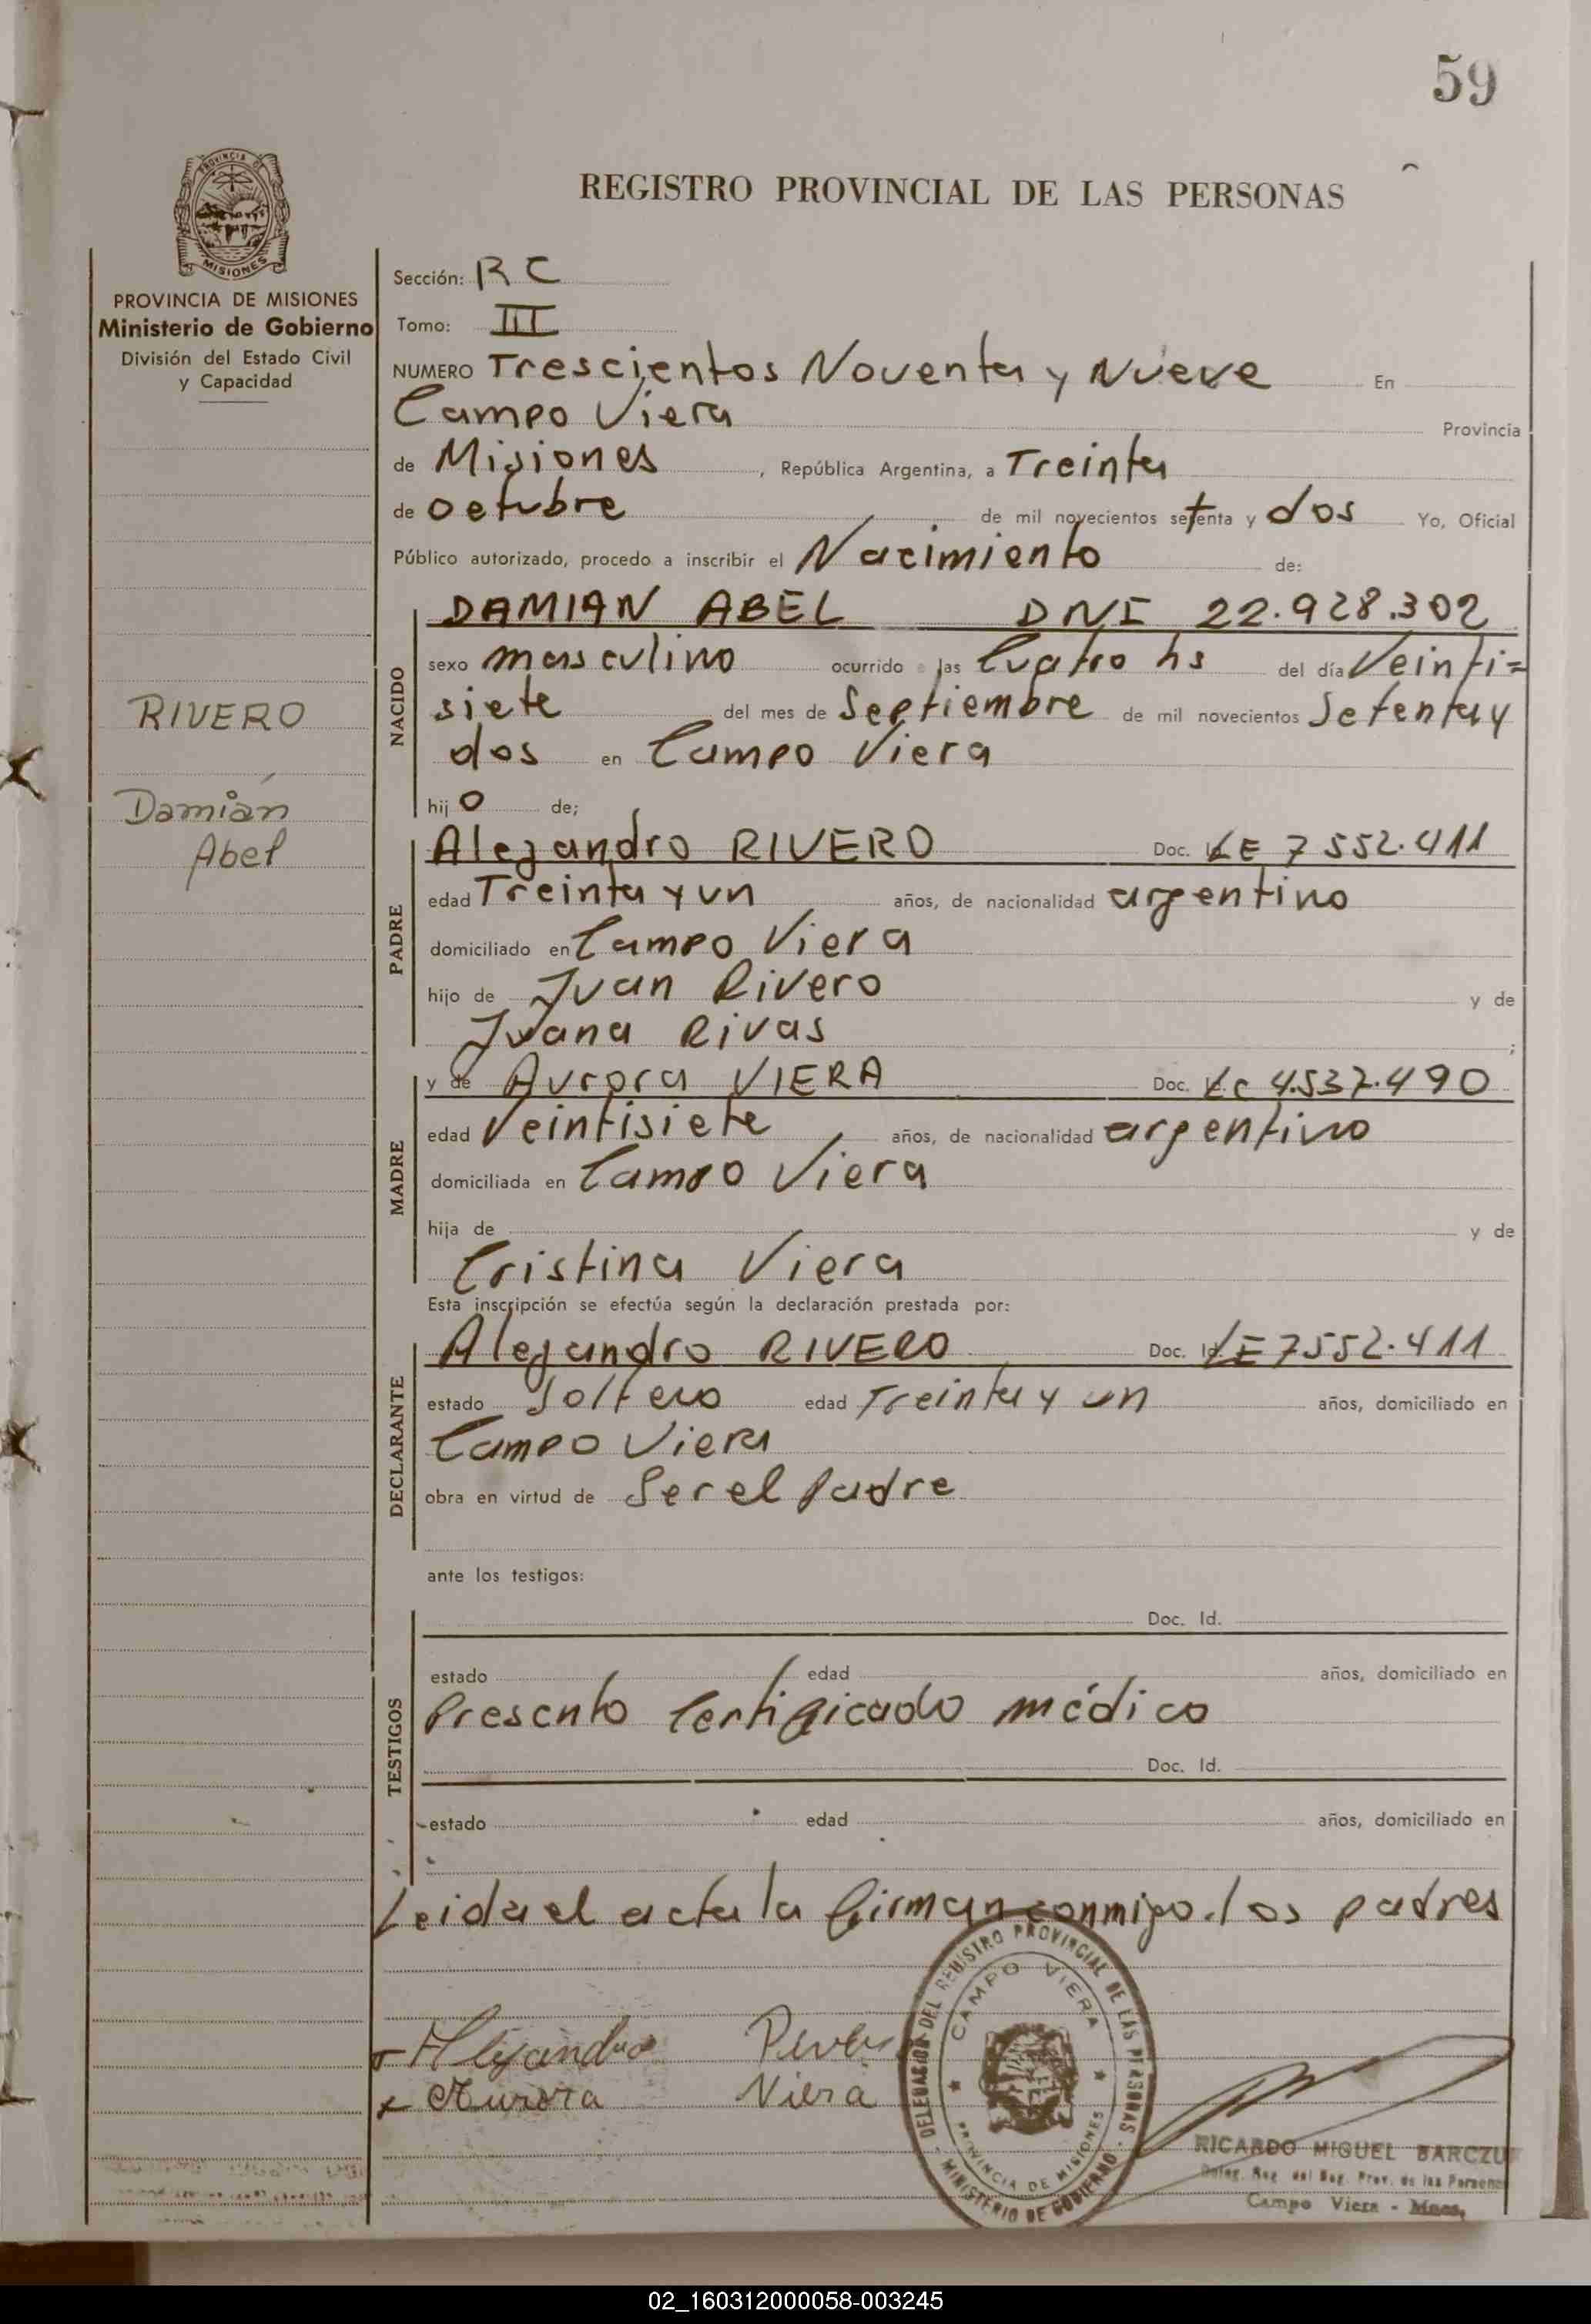 59
REGISTRO PROVINCIAL DE LAS PERSONAS
PROVINCIA DE
MISIONES
PROVINCIA DE MISIONES
Ministerio de Gobierno
División del Estado Civil
y Capacidad
RIVERO
Damián
Abel
Sección: R C
Tomo: III
NUMERO Trescientos Noventa y Nueve En
Campo Viera Provincia
de Misiones, República Argentina, a Treinta
de octubre de mil novecientos setenta y dos Yo, Oficial
Público autorizado, procedo a inscribir el Nacimiento de:
NACIDO
DAMIAN ABEL DNI 22.928.302
sexo masculino ocurrido a las Cuatro hs del día Veinti=
siete del mes de Septiembre de mil novecientos Setenta y
dos en Campo Viera
hijo de;
PADRE
Alejandro RIVERO Doc. LE 7552.411
edad Treinta y un años, de nacionalidad argentino
domiciliado en Campo Viera
hijo de Juan Rivero y de
Juana Rivas ;
MADRE
y de Aurora VIERA Doc. LC 4.537.490
edad Veintisiete años, de nacionalidad argentino
domiciliada en Campo Viera
hija de y de
Cristina Viera
Esta inscripción se efectúa según la declaración prestada por:
DECLARANTE
Alejandro RIVERO Doc. Id. LE 7552.411
estado Soltero edad Treinta y un años, domiciliado en
Campo Viera
obra en virtud de Ser el padre
ante los testigos:
TESTIGOS
Doc. Id.
estado edad años, domiciliado en
Presento Certificado médico
Doc. Id.
estado edad años, domiciliado en
Leida el acta la firman conmigo los padres
Alejandro Rivero
Aurora Viera
DELEGACION DEL REGISTRO PROVINCIAL DE LAS PERSONAS
CAMPO VIERA
PROVINCIA DE MISIONES
MINISTERIO DE GOBIERNO
RICARDO MIGUEL BARCZU
Deleg. Reg. del Reg. Prov. de las Persona
Campo Viera - Mnes.
02_160312000058-003245